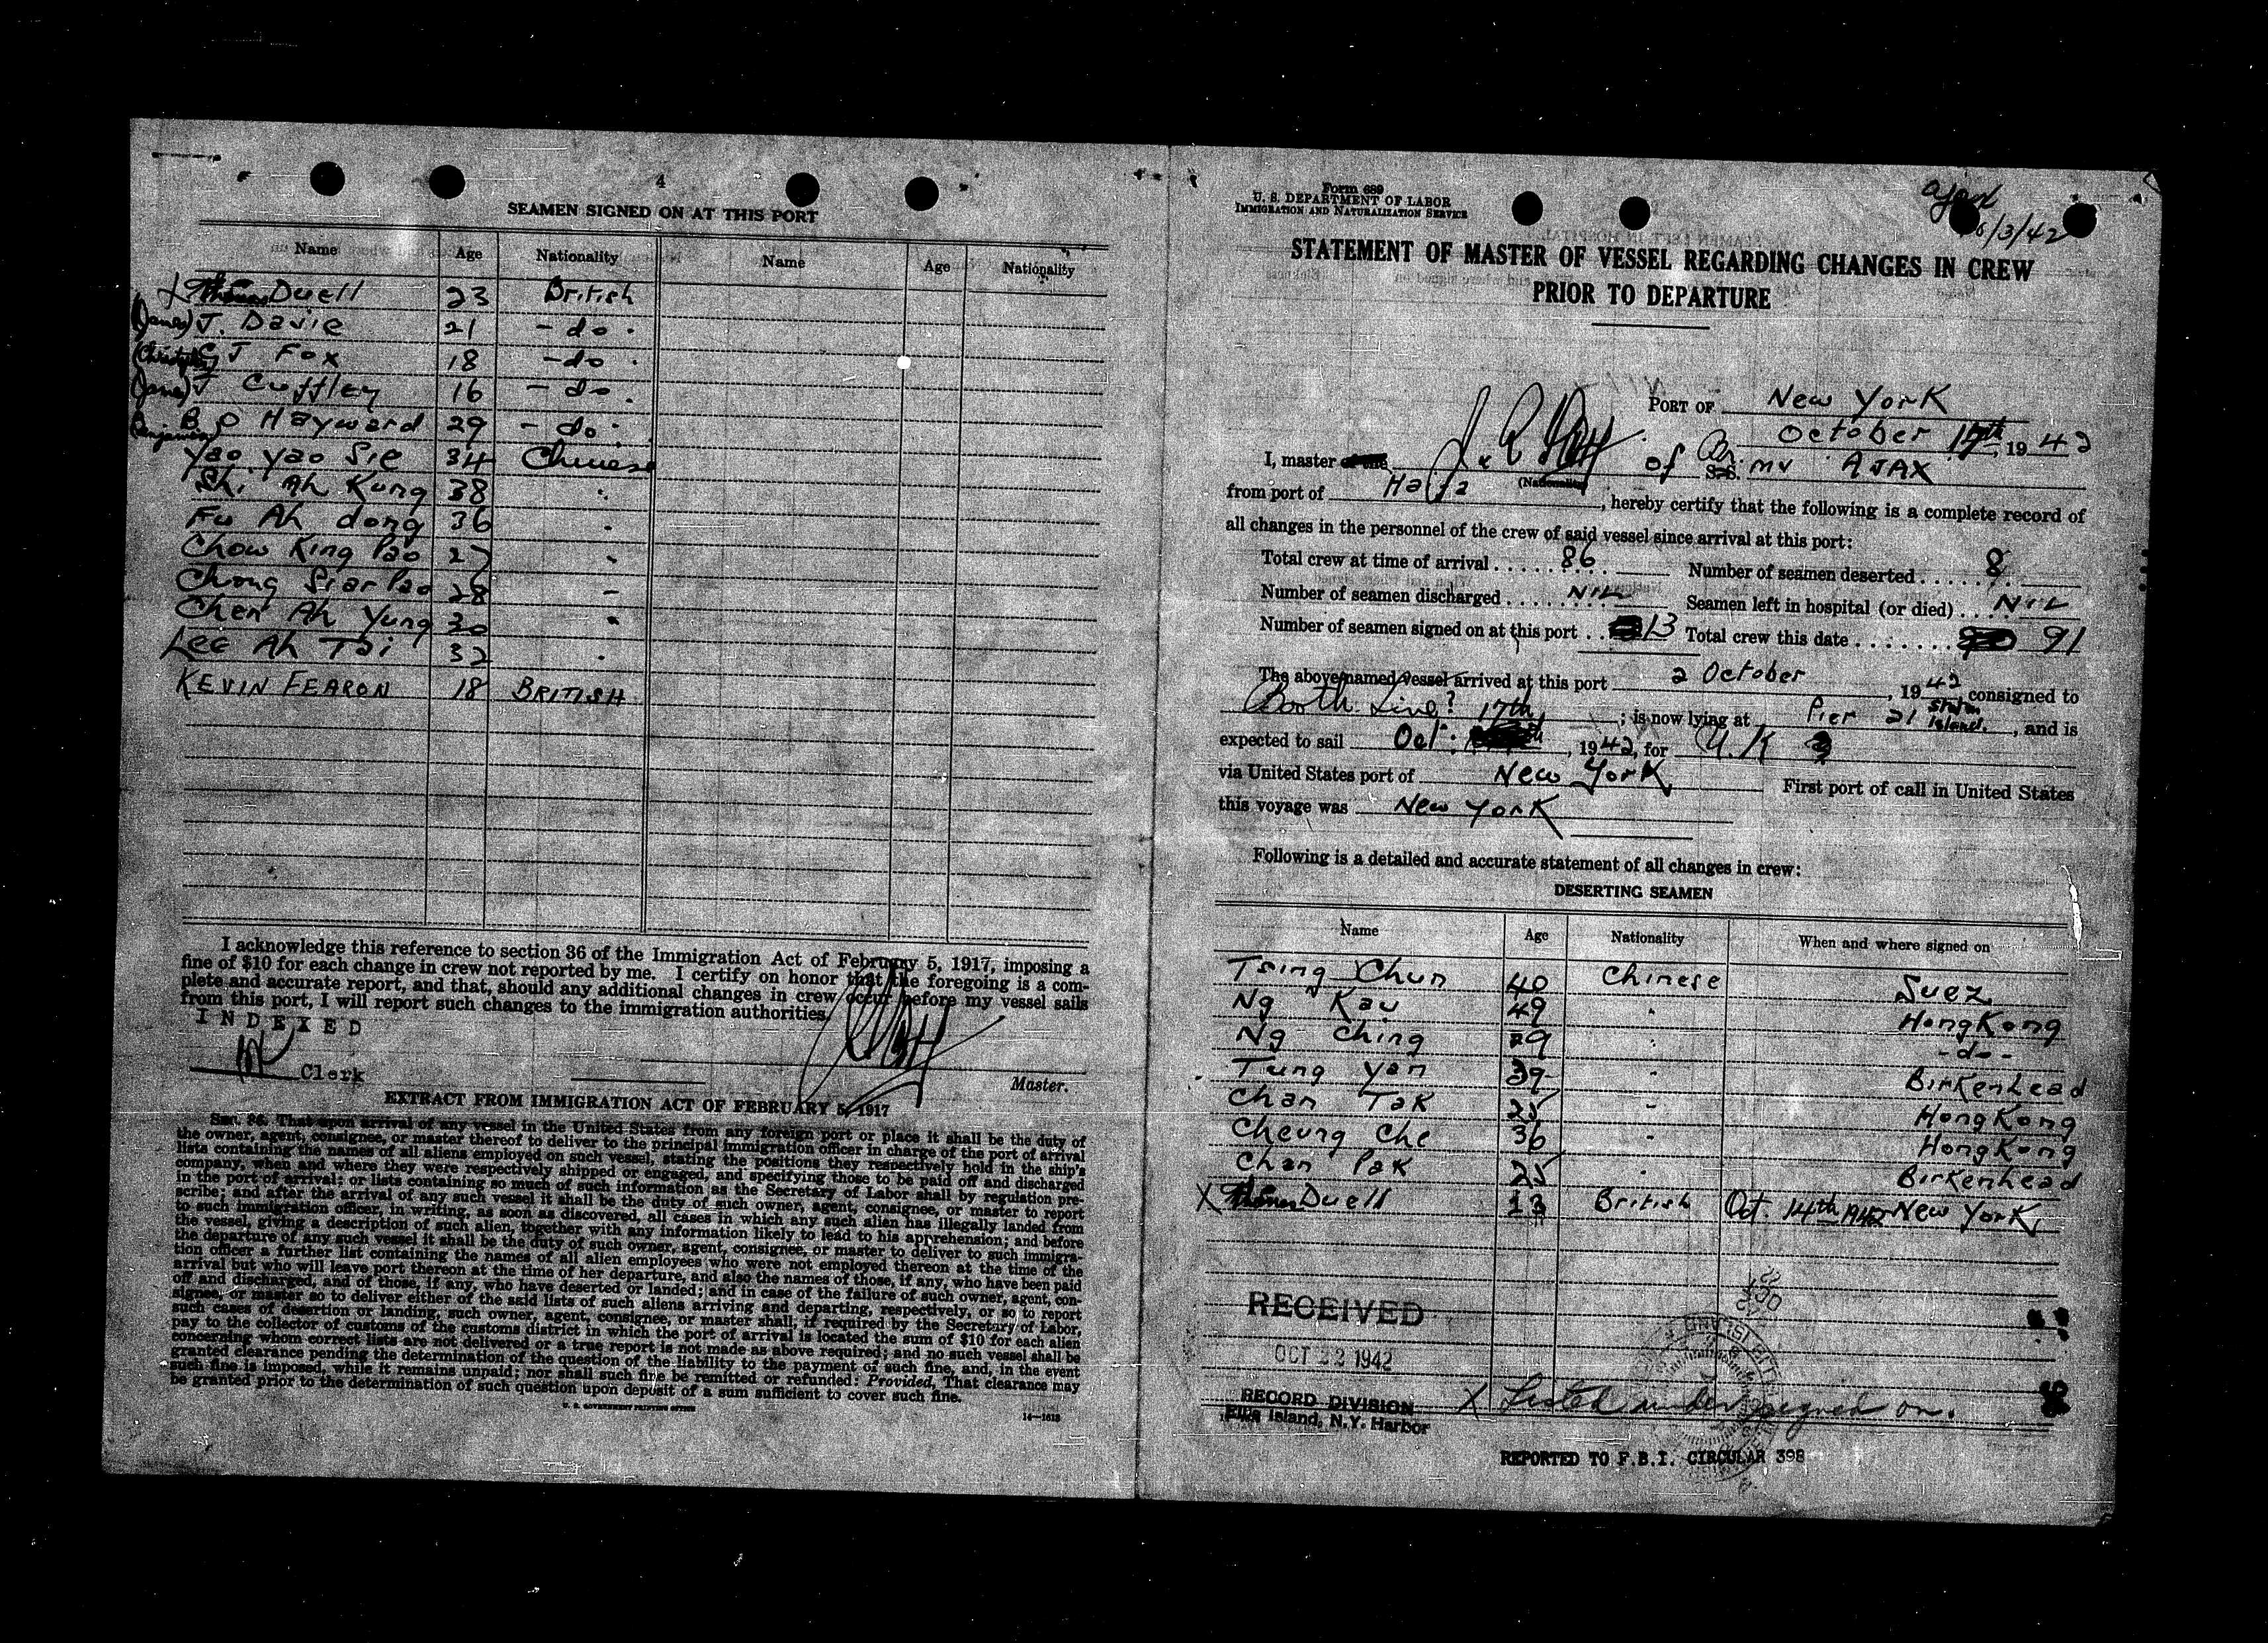 4
SEAMEN SIGNED ON AT THIS PORT
Name Age Nationality Name Age Nationality
Thomas Duell 23 British
(James) J. Davie 21 - do -
(Christopher) C J Fox 18 - do -
(James) J Cuffley 16 - do -
(Benjamin) B. O Hayward 29 - do -
Yao Yao Sie 34 Chinese
Shi Ah Kung 38 "
Fu Ah dong 36 "
Chow King Pao 27 "
Chong Siar Pao 28 "
Chen Ah Yung 30 "
Lee Ah Tsi 32 "
KEVIN FEARON 18 BRITISH
I acknowledge this reference to section 36 of the Immigration Act of February 5, 1917, imposing a
fine of $10 for each change in crew not reported by me. I certify on honor that the foregoing is a com-
plete and accurate report, and that, should any additional changes in crew occur before my vessel sails
from this port, I will report such changes to the immigration authorities.
INDEXED
Clerk
Master.
EXTRACT FROM IMMIGRATION ACT OF FEBRUARY 5, 1917
Sec. 36. That upon arrival of any vessel in the United States from any foreign port or place it shall be the duty of
the owner, agent, consignee, or master thereof to deliver to the principal immigration officer in charge of the port of arrival
lists containing the names of all aliens employed on such vessel, stating the positions they respectively hold in the ship's
company, when and where they were respectively shipped or engaged, and specifying those to be paid off and discharged
in the port of arrival; or lists containing so much of such information as the Secretary of Labor shall by regulation pre-
scribe; and after the arrival of any such vessel it shall be the duty of such owner, agent, consignee, or master to report
to such immigration officer, in writing, as soon as discovered, all cases in which any such alien has illegally landed from
the vessel, giving a description of such alien, together with any information likely to lead to his apprehension; and before
the departure of any such vessel it shall be the duty of such owner, agent, consignee, or master to deliver to such immigra-
tion officer a further list containing the names of all alien employees who were not employed thereon at the time of the
arrival but who will leave port thereon at the time of her departure, and also the names of those, if any, who have been paid
off and discharged, and of those, if any, who have deserted or landed; and in case of the failure of such owner, agent, con-
signee, or master so to deliver either of the said lists of such aliens arriving and departing, respectively, or so to report
such cases of desertion or landing, such owner, agent, consignee, or master shall, if required by the Secretary of Labor,
pay to the collector of customs of the customs district in which the port of arrival is located the sum of $10 for each alien
concerning whom correct lists are not delivered or a true report is not made as above required; and no such vessel shall be
granted clearance pending the determination of the question of the liability to the payment of such fine, and, in the event
such fine is imposed, while it remains unpaid; nor shall such fine be remitted or refunded: Provided, That clearance may
be granted prior to the determination of such question upon deposit of a sum sufficient to cover such fine.
U. S. GOVERNMENT PRINTING OFFICE
14—1613
Form 689
U. S. DEPARTMENT OF LABOR
IMMIGRATION AND NATURALIZATION SERVICE
Ajax
/3/42
STATEMENT OF MASTER OF VESSEL REGARDING CHANGES IN CREW
PRIOR TO DEPARTURE
PORT OF New York
October 17th, 1942
I, master of Br. S.S. MV AJAX
(Nationality)
from port of Haifa, hereby certify that the following is a complete record of
all changes in the personnel of the crew of said vessel since arrival at this port:
Total crew at time of arrival 86 Number of seamen deserted 8
Number of seamen discharged NIL Seamen left in hospital (or died) NIL
Number of seamen signed on at this port 13 Total crew this date 91
The above-named vessel arrived at this port 2 October, 1942 consigned to
Booth Line? ; is now lying at Pier 21 Staten Island, and is
expected to sail Oct: 17th, 1942, for U.K
via United States port of New York First port of call in United States
this voyage was New York
Following is a detailed and accurate statement of all changes in crew:
DESERTING SEAMEN
Name Age Nationality When and where signed on
Tsing Chun 40 Chinese Suez
Ng Kau 49 " HongKong
Ng Ching 29 " - do -
Tung Yan 39 " Birkenhead
Chan Tak 25 " HongKong
Cheung Che 36 " HongKong
Chan Pak 25 " Birkenhead
X Thomas Duell British Oct. 14th 1942 New York
RECEIVED
OCT 22 1942
RECORD DIVISION
Ellis Island, N.Y. Harbor
X Listed under signed on.
REPORTED TO F.B.I. CIRCULAR 398